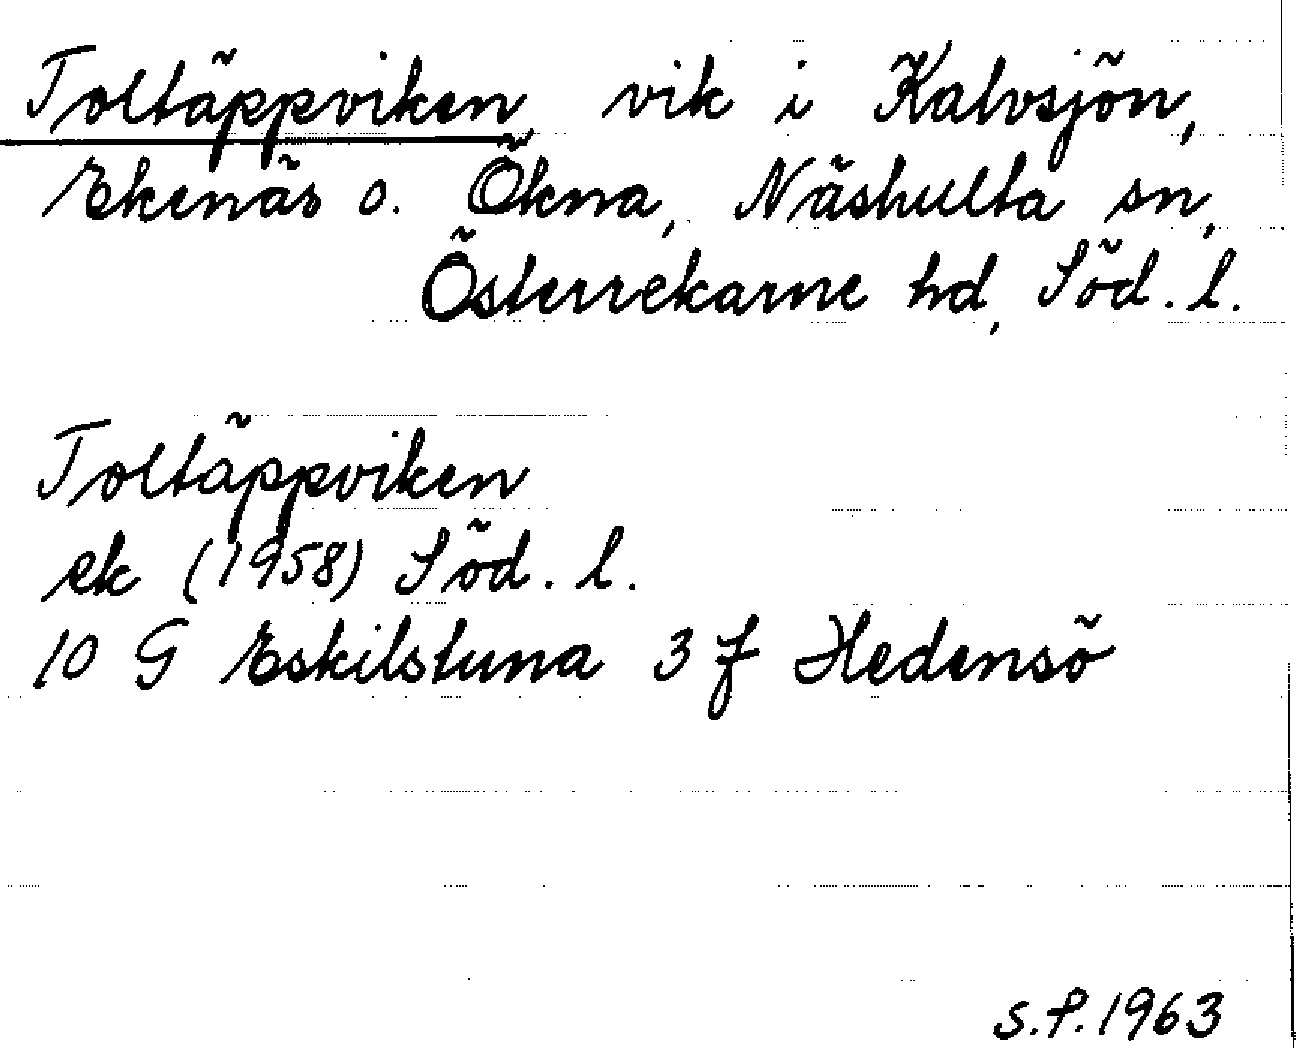 Toltäppviken, vik i Kalvsjön,
Ekenäs o. Ökna, Näshulta sn,
Österrekarne hd, Söd. l.
Toltäppviken
ek (1958) Söd. l.
10 G Eskilstuna 3 f Hedensö
S.P. 1963